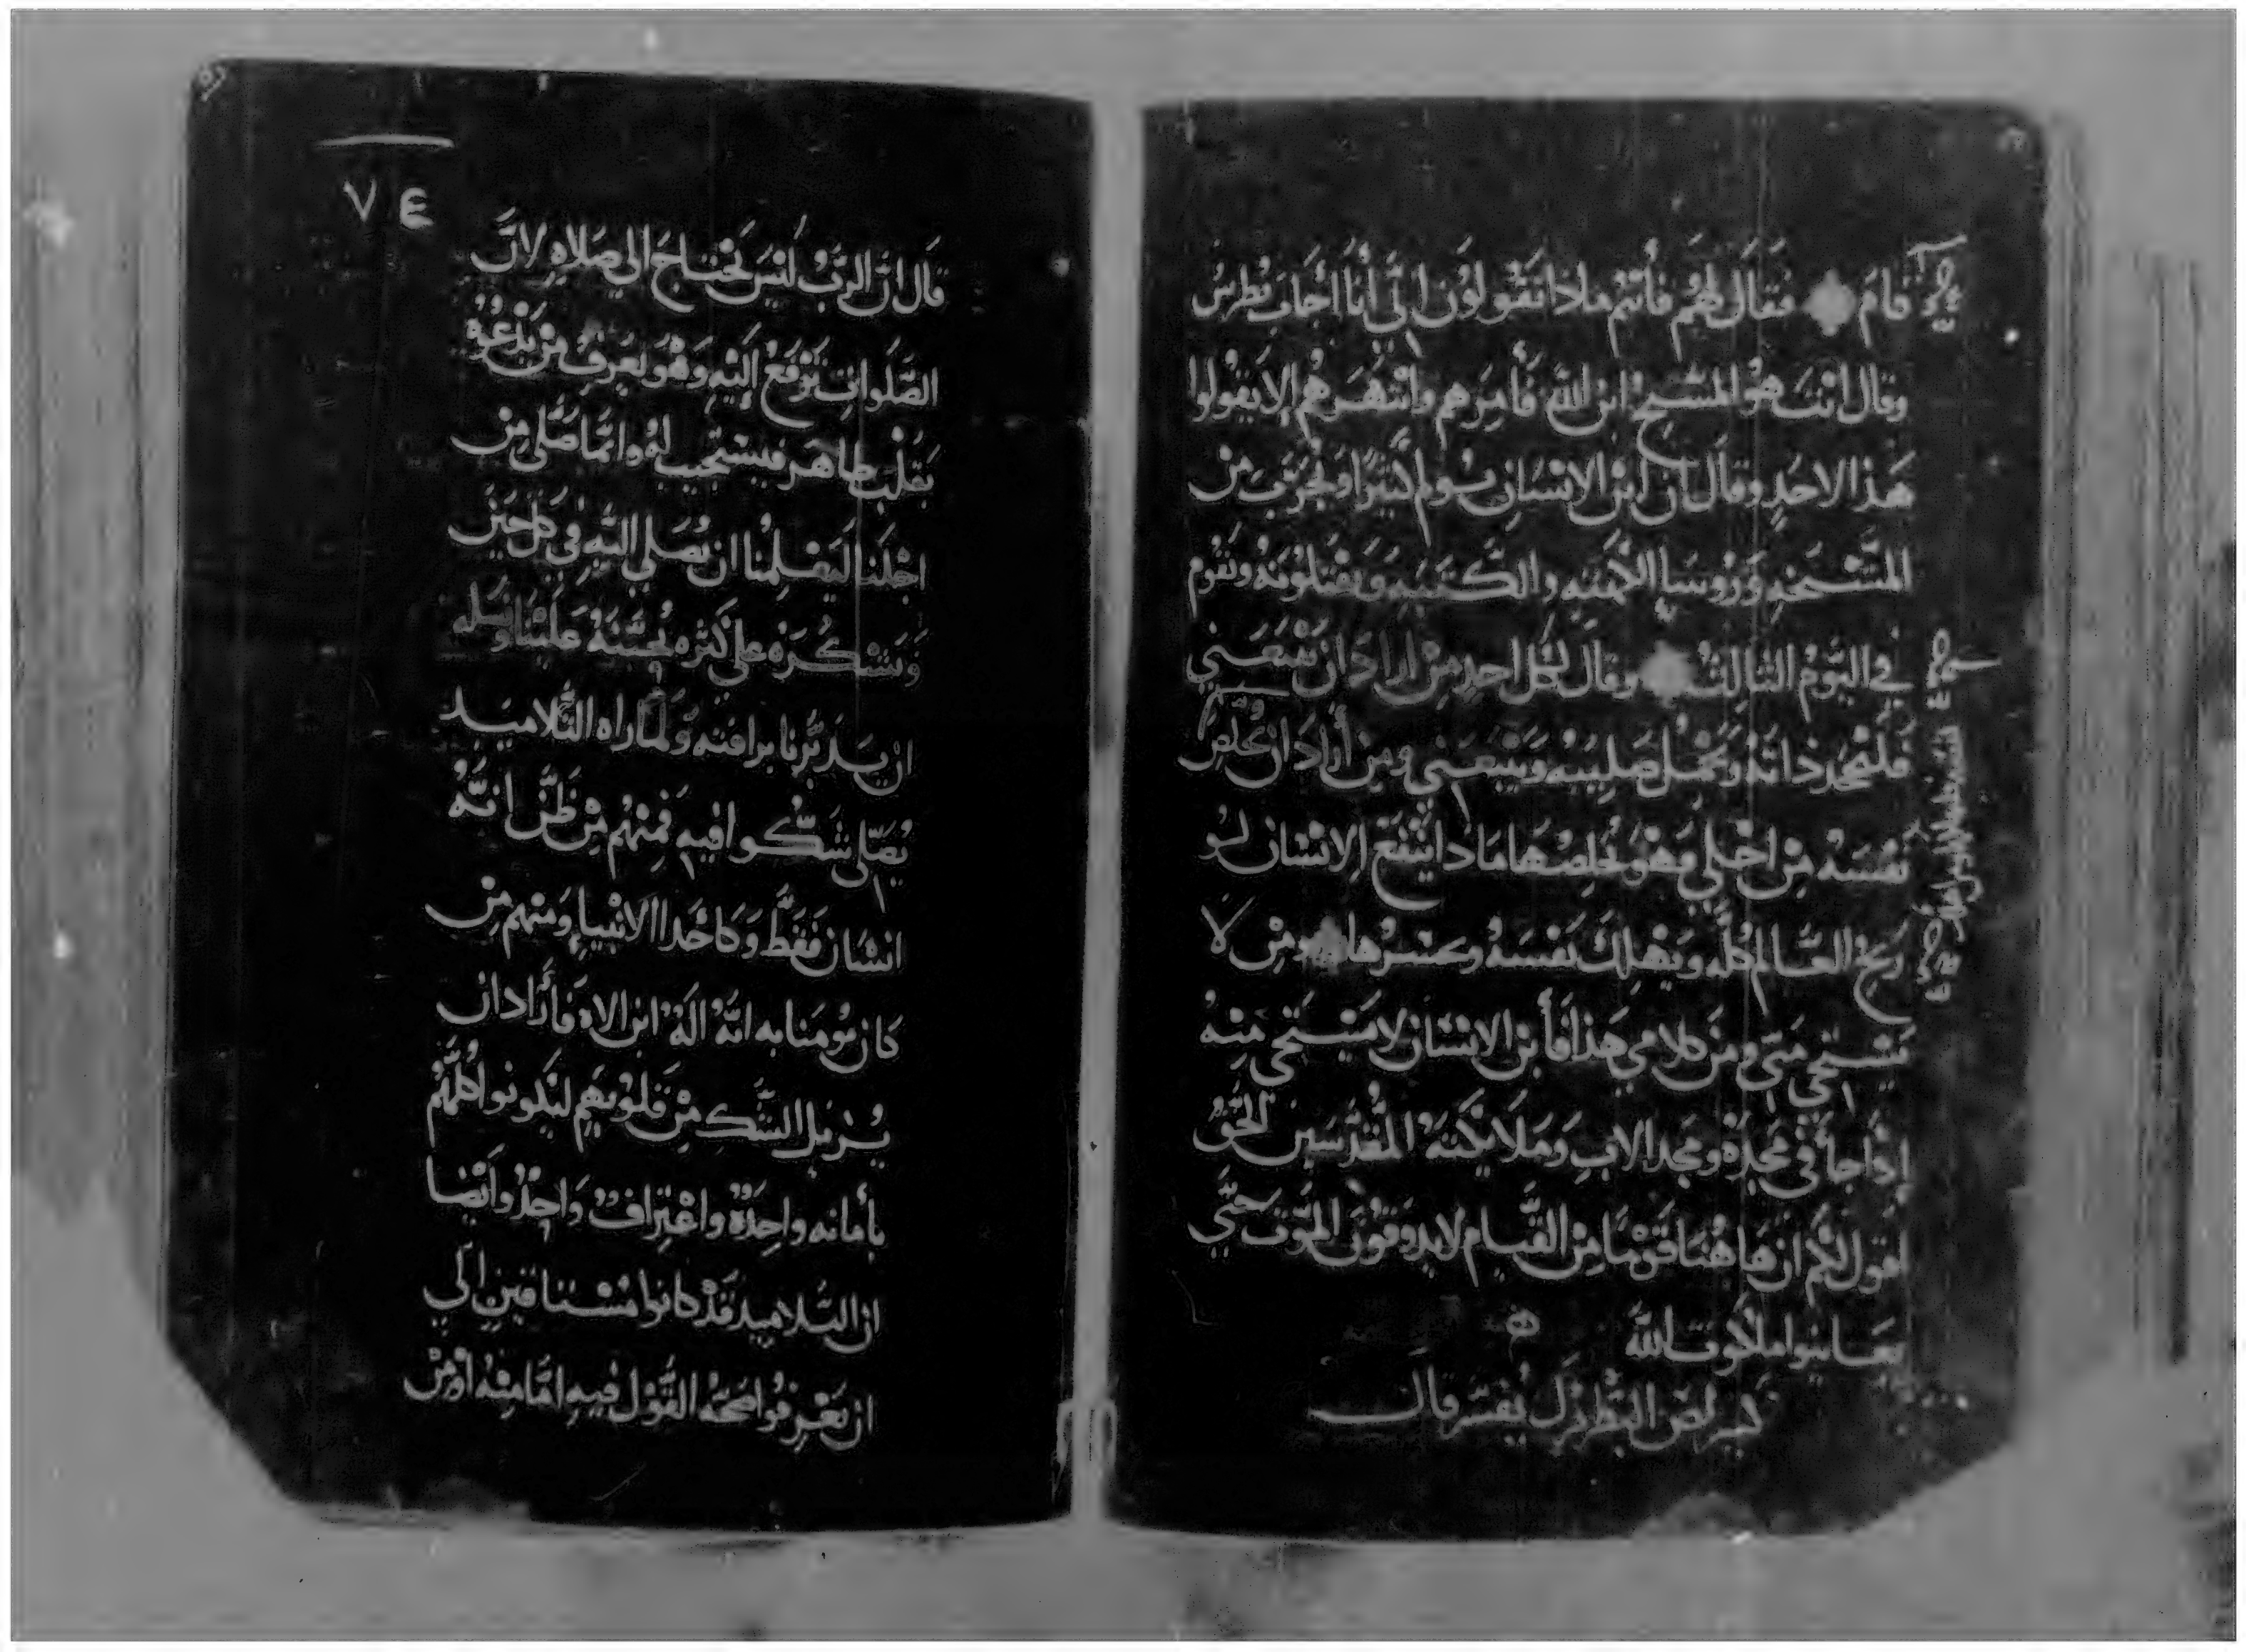 قام فقال لهم فأنتم ماذا تقولون اني أنا اجاب بطرس
وقال انت هو المسيح ابن الله فأمرهم وانتهرهم الا يقولوا
هذا الاحد وقال ان ابن الانسان يولم كثيرا ويجرب من
المشيخه وروسا الكهنه والكتبه ويقتلونه ويقوم
في اليوم الثالث وقال لكل احد من اراد ان يتبعني
فليجحد ذاته ويحمل صليبه ويتبعني ومن أراد ان يخلص
نفسه من اجلي وهو يخلصها ماذا ينفع الانسان لو
ربح العالم كله ويهلك نفسه وخسرها ومن لا
يستحي مني ومن كلامي هذا فأبن الانسان لا يستحي منه
إذا جأ في مجده ومجد الاب وملايكته المقدسين الحق
اقول لكم ان هاهنا قوما من القيام لا يدوقون الموت حتي
يعاينوا ملكوت الله
يفسر قال
٧٤
قال ان الرب ليس تحتاج الي صلاه لان
الصلوات ترفع إليه وهو يعرف من يدعوه
بقلب طاهر فيستجيب له وانما صلى من
اجلنا ليعلمنا ان نصلي اليه في كل حين
ونشكره علي كثره محبته علينا ونسل
ان يدبرنا برافته ولما راه التلاميد
يصلي شكوا فيه فمنهم من ظن انه
انسان فقط وكاحدا الانبيا ومنهم من
كان يومنا به انه اله ابن الاه فأراد ان
يزيل الشك من قلوبهم ليكونوا كلهم
بأمانه واحده واعتراف واحد وايضا
ان التلاميد قد كانوا مشتاقين الي
ان يعرفوا صحه القول فيه اما منه او من